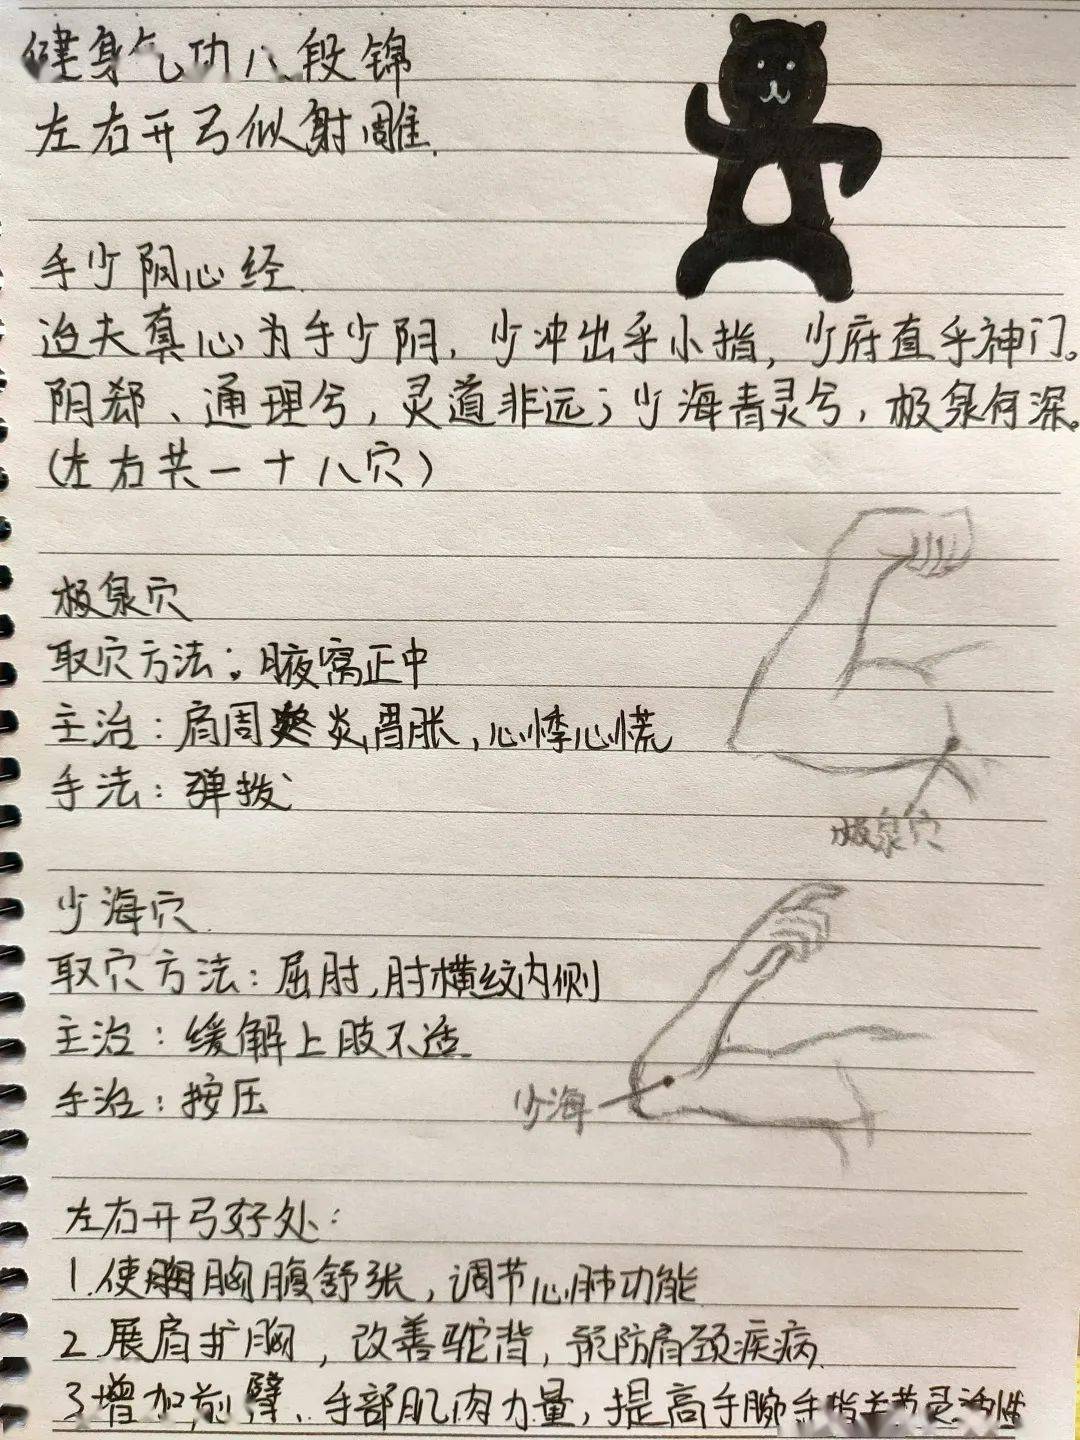 健身气功八段锦
左右开弓似射雕.
手少阴心经.
迨夫真心为手少阴，少冲出乎小指，少府直乎神门。
阴郄、通理兮，灵道非远；少海青灵兮，极泉何深。
（左右共一十八穴）
极泉穴
取穴方法：腋窝正中
主治：肩周炎，胃胀，心悸心慌
手法：弹拨
极泉穴
少海穴
取穴方法：屈肘，肘横纹内侧
主治：缓解上肢不适.
手治：按压
少海
左右开弓好处：
1.使胸腹舒张，调节心肺功能
2.展肩扩胸，改善驼背，预防肩颈疾病.
3.增加前臂、手部肌肉力量，提高手腕手指关节灵活性